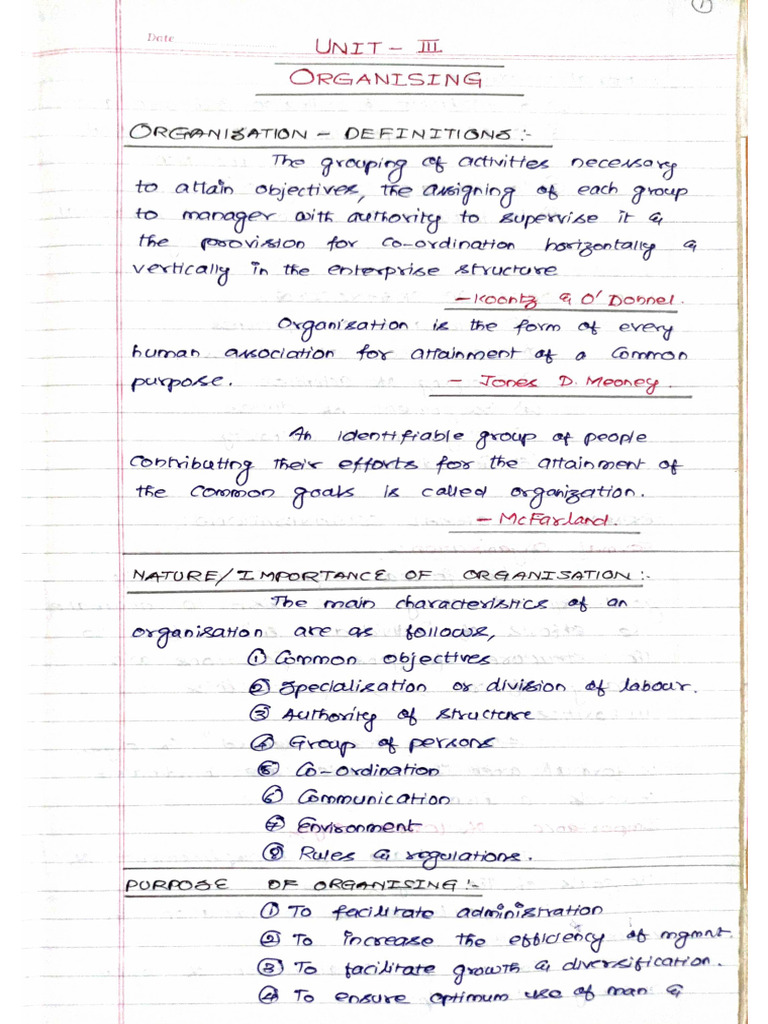 1
Date
UNIT - III
ORGANISING
ORGANIZATION - DEFINITIONS :-
The grouping of activities necessary
to attain objectives, the assigning of each group
to manager with authority to supervise it &
the provision for co-ordination horizontally &
vertically in the enterprise structure
- Koontz & O' Donnel.
Organization is the form of every
human association for attainment of a common
purpose.
- Jones D. Meoney.
An identifiable group of people
contributing their efforts for the attainment of
the common goals is called organization.
- McFarland.
NATURE/IMPORTANCE OF ORGANISATION :-
The main characteristics of an
organisation are as follows,
① Common objectives
② Specialisation or division of labour.
③ Authority of structure
④ Group of persons
⑤ Co-ordination
⑥ Communication
⑦ Environment
⑧ Rules & regulations.
PURPOSE OF ORGANISING :-
① To facilitate administration
② To increase the efficiency of mgmnt.
③ To facilitate growth & diversification.
④ To ensure optimum use of man &